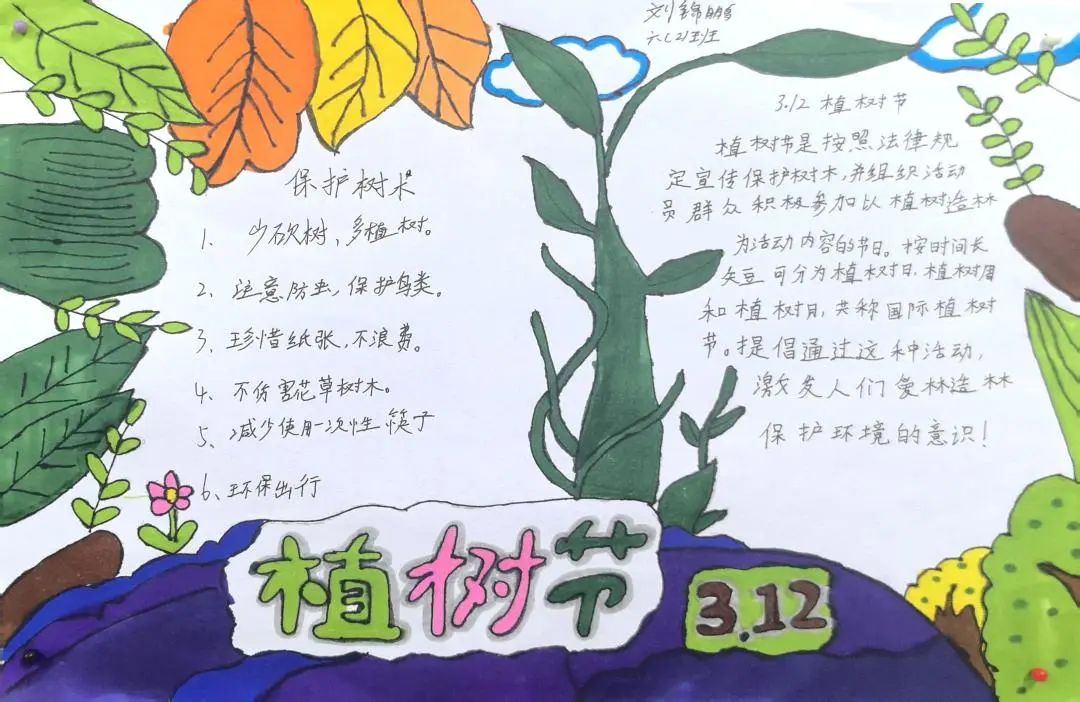 刘锦鹏
六(2)班
保护树木
1、少砍树、多植树。
2、注意防虫，保护鸟类。
3、珍惜纸张，不浪费。
4、不伤害花草树木。
5、减少使用一次性筷子
6、环保出行
3.12 植树节
植树节是按照法律规
定宣传保护树木，并组织活动
员群众积极参加以植树造林
为活动内容的节日。按时间长
矢豆可分为植树日，植树周
和植树月，共称国际植树
节。提倡通过这种活动，
激发人们爱林造林
保护环境的意识！
植树节
3.12